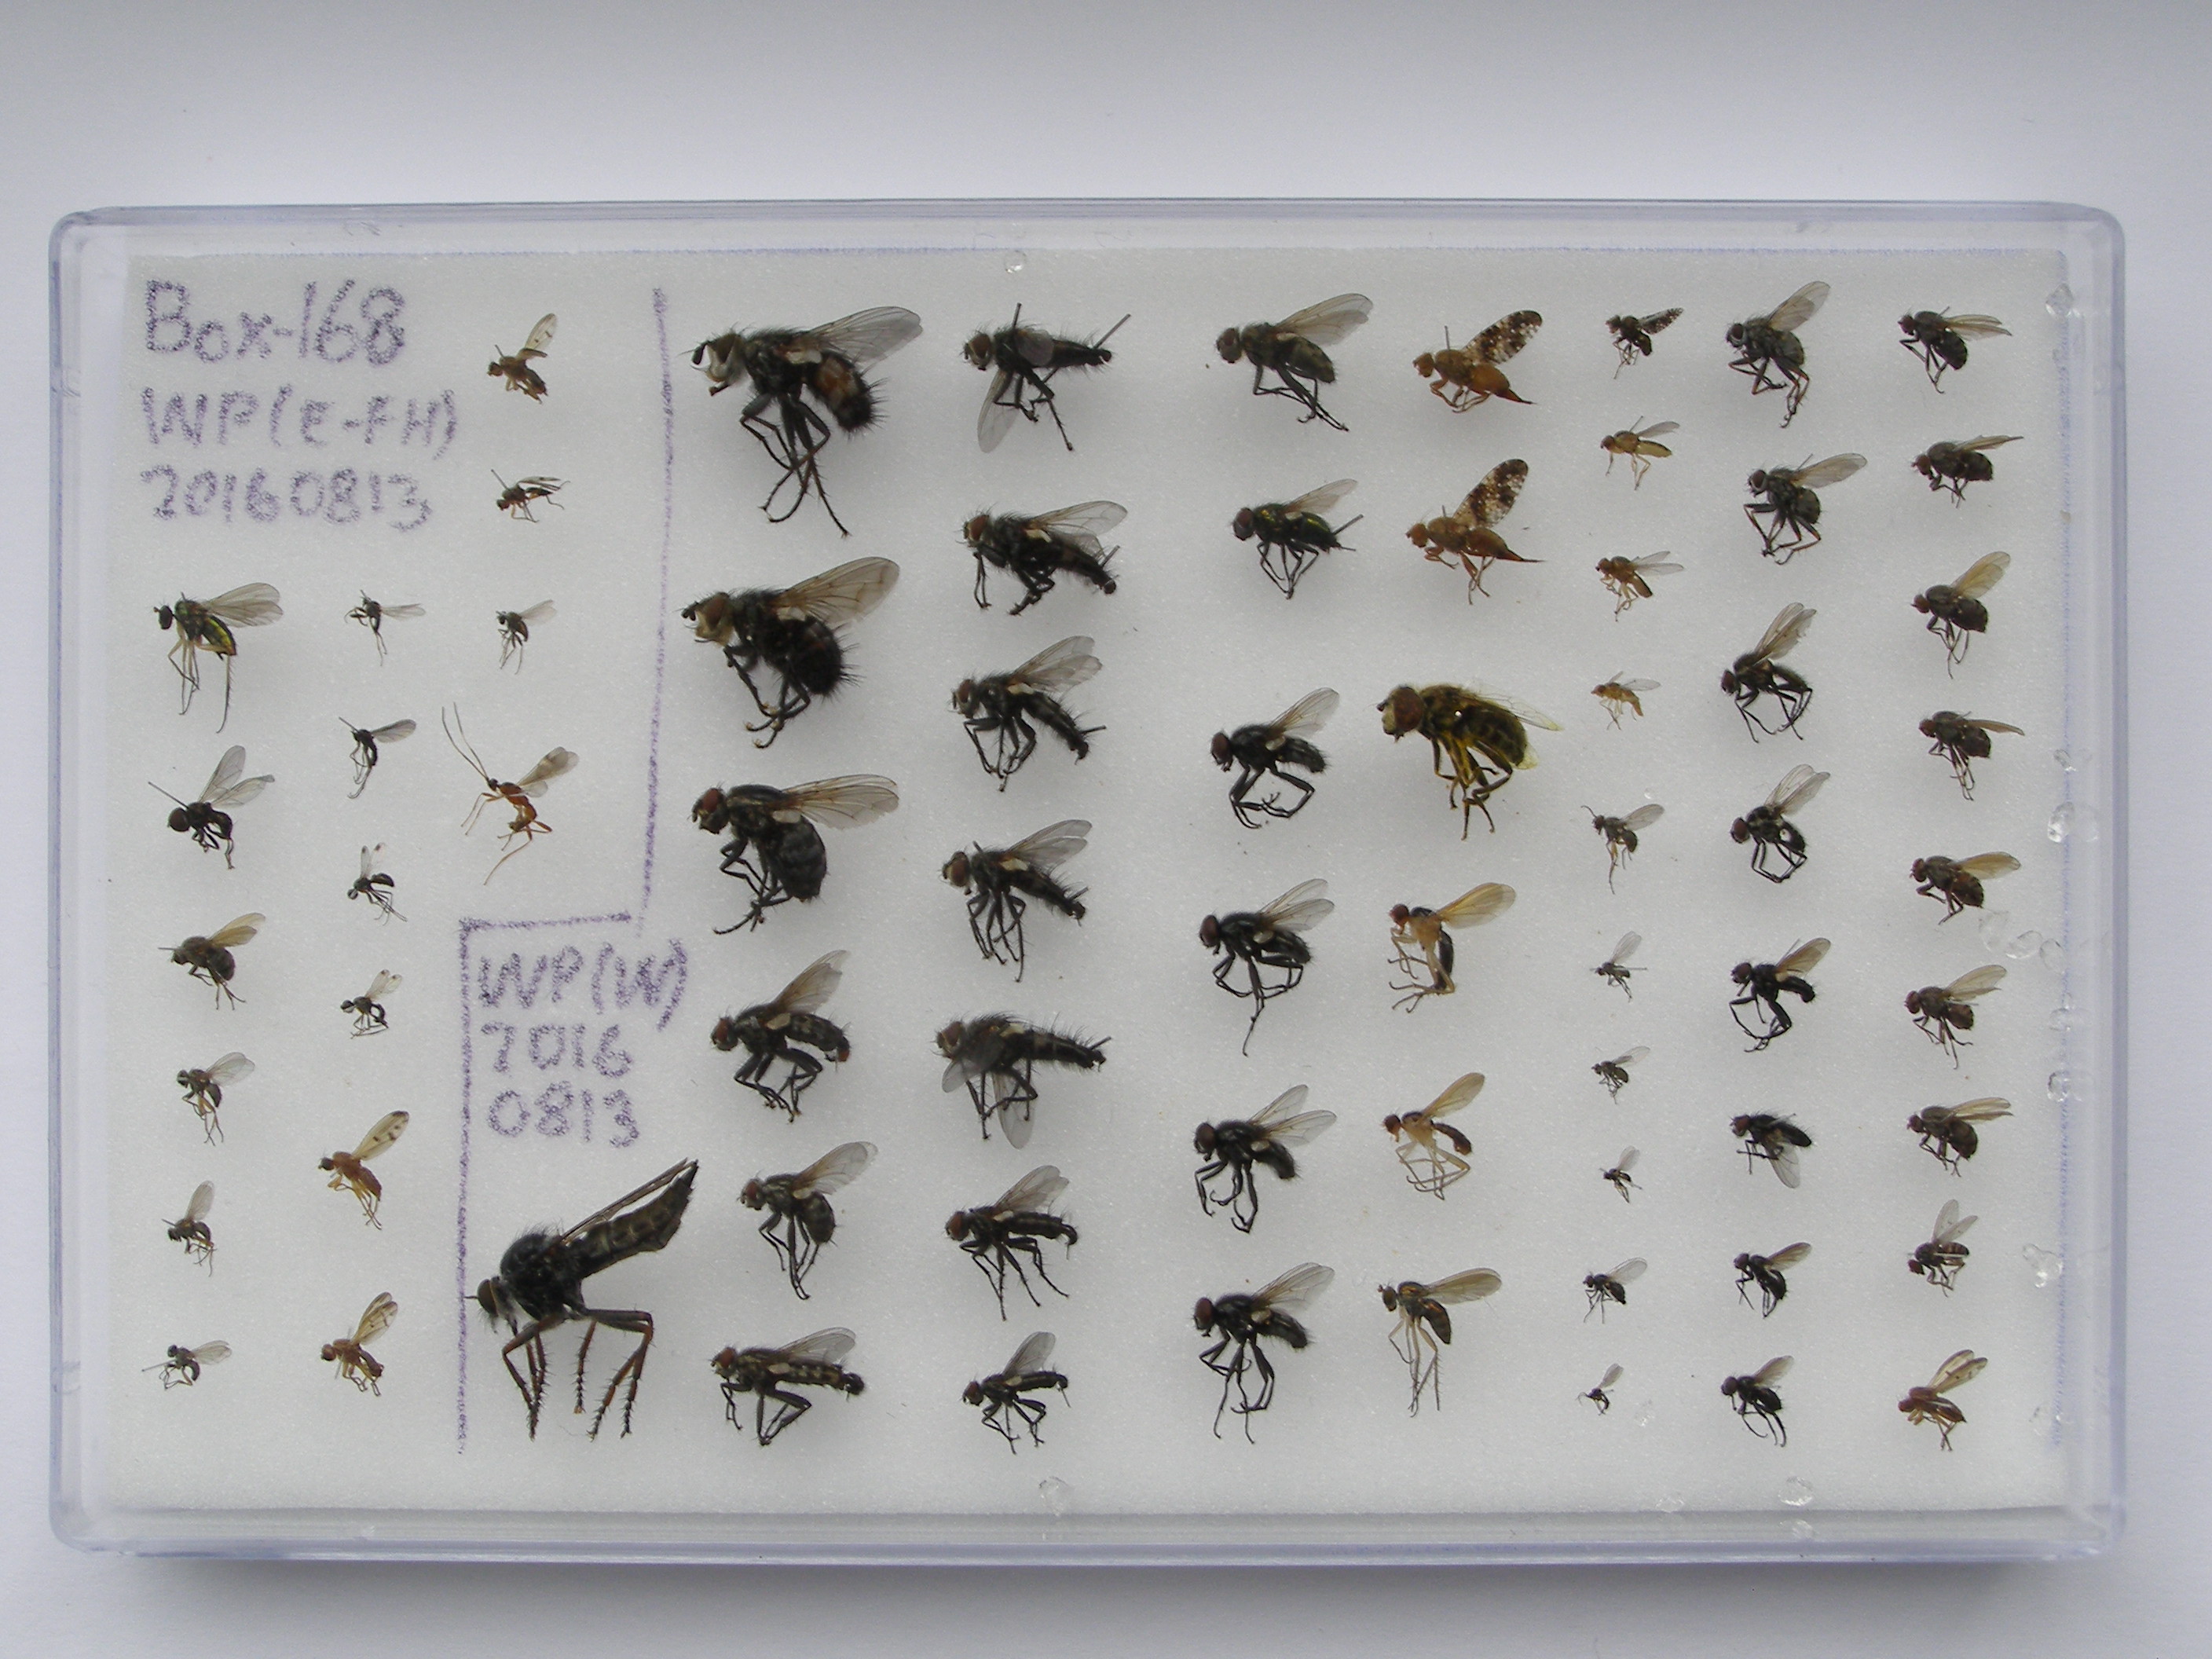 Box-168
WP(E-FH)
20160813
WP(W)
2016
0813